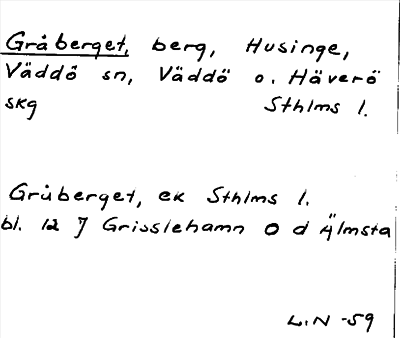 Gråberget, berg, Husinge,
Väddö sn, Väddö o. Häverö
skg Sthlms l.
Gråberget, ek Sthlms l.
bl. 12 J Grisslehamn O d Älmsta
L.N -59